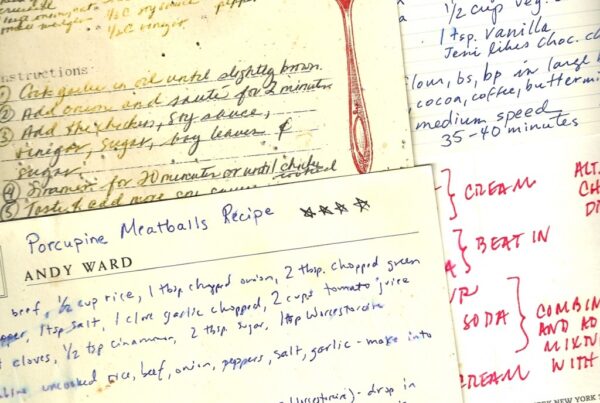 1/2 C soy sauce
1/2 C vinegar
nstructions:
① Cook garlic in oil until slightly brown.
② Add onion and sauté for 2 minutes
③ Add the chicken, soy sauce,
vinegar, sugar, bay leaves &
sugar.
④ Simmer for 20 minutes or until
cooked
⑤ Taste & add more soy sauce
1/2 cup veg.
1 tsp. vanilla
Jeni likes choc. ch
lour, bs, bp in large b
cocoa, coffee, buttermi
medium speed
35-40 minutes
CREAM
ALT
CH
D
BEAT IN
SODA
COMBIN
AND AD
MIXTU
WITH
REAM
NEW YORK
Porcupine Meatballs Recipe ☆☆☆☆
ANDY WARD
beef, 1/2 cup rice, 1 tbsp chopped onion, 2 tbsp. chopped green
epper, 1 tsp salt, 1 clove garlic chopped, 2 cups tomato juice
cloves, 1/2 tsp cinnamon, 2 tbsp. sugar, 1 tbsp Worcestershire
uncooked rice, beef, onion, peppers, salt, garlic - make into
- drop in